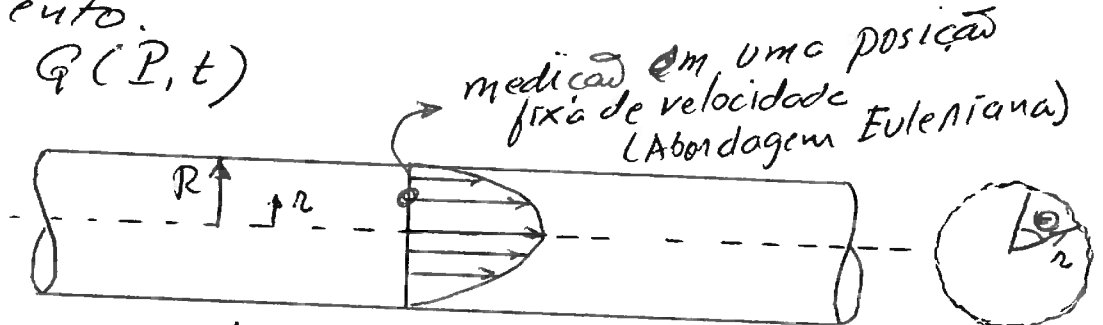 ento.
G(P,t)
medição em uma posição
fixa de velocidade
(Abordagem Euleriana)
R
r
θ
r